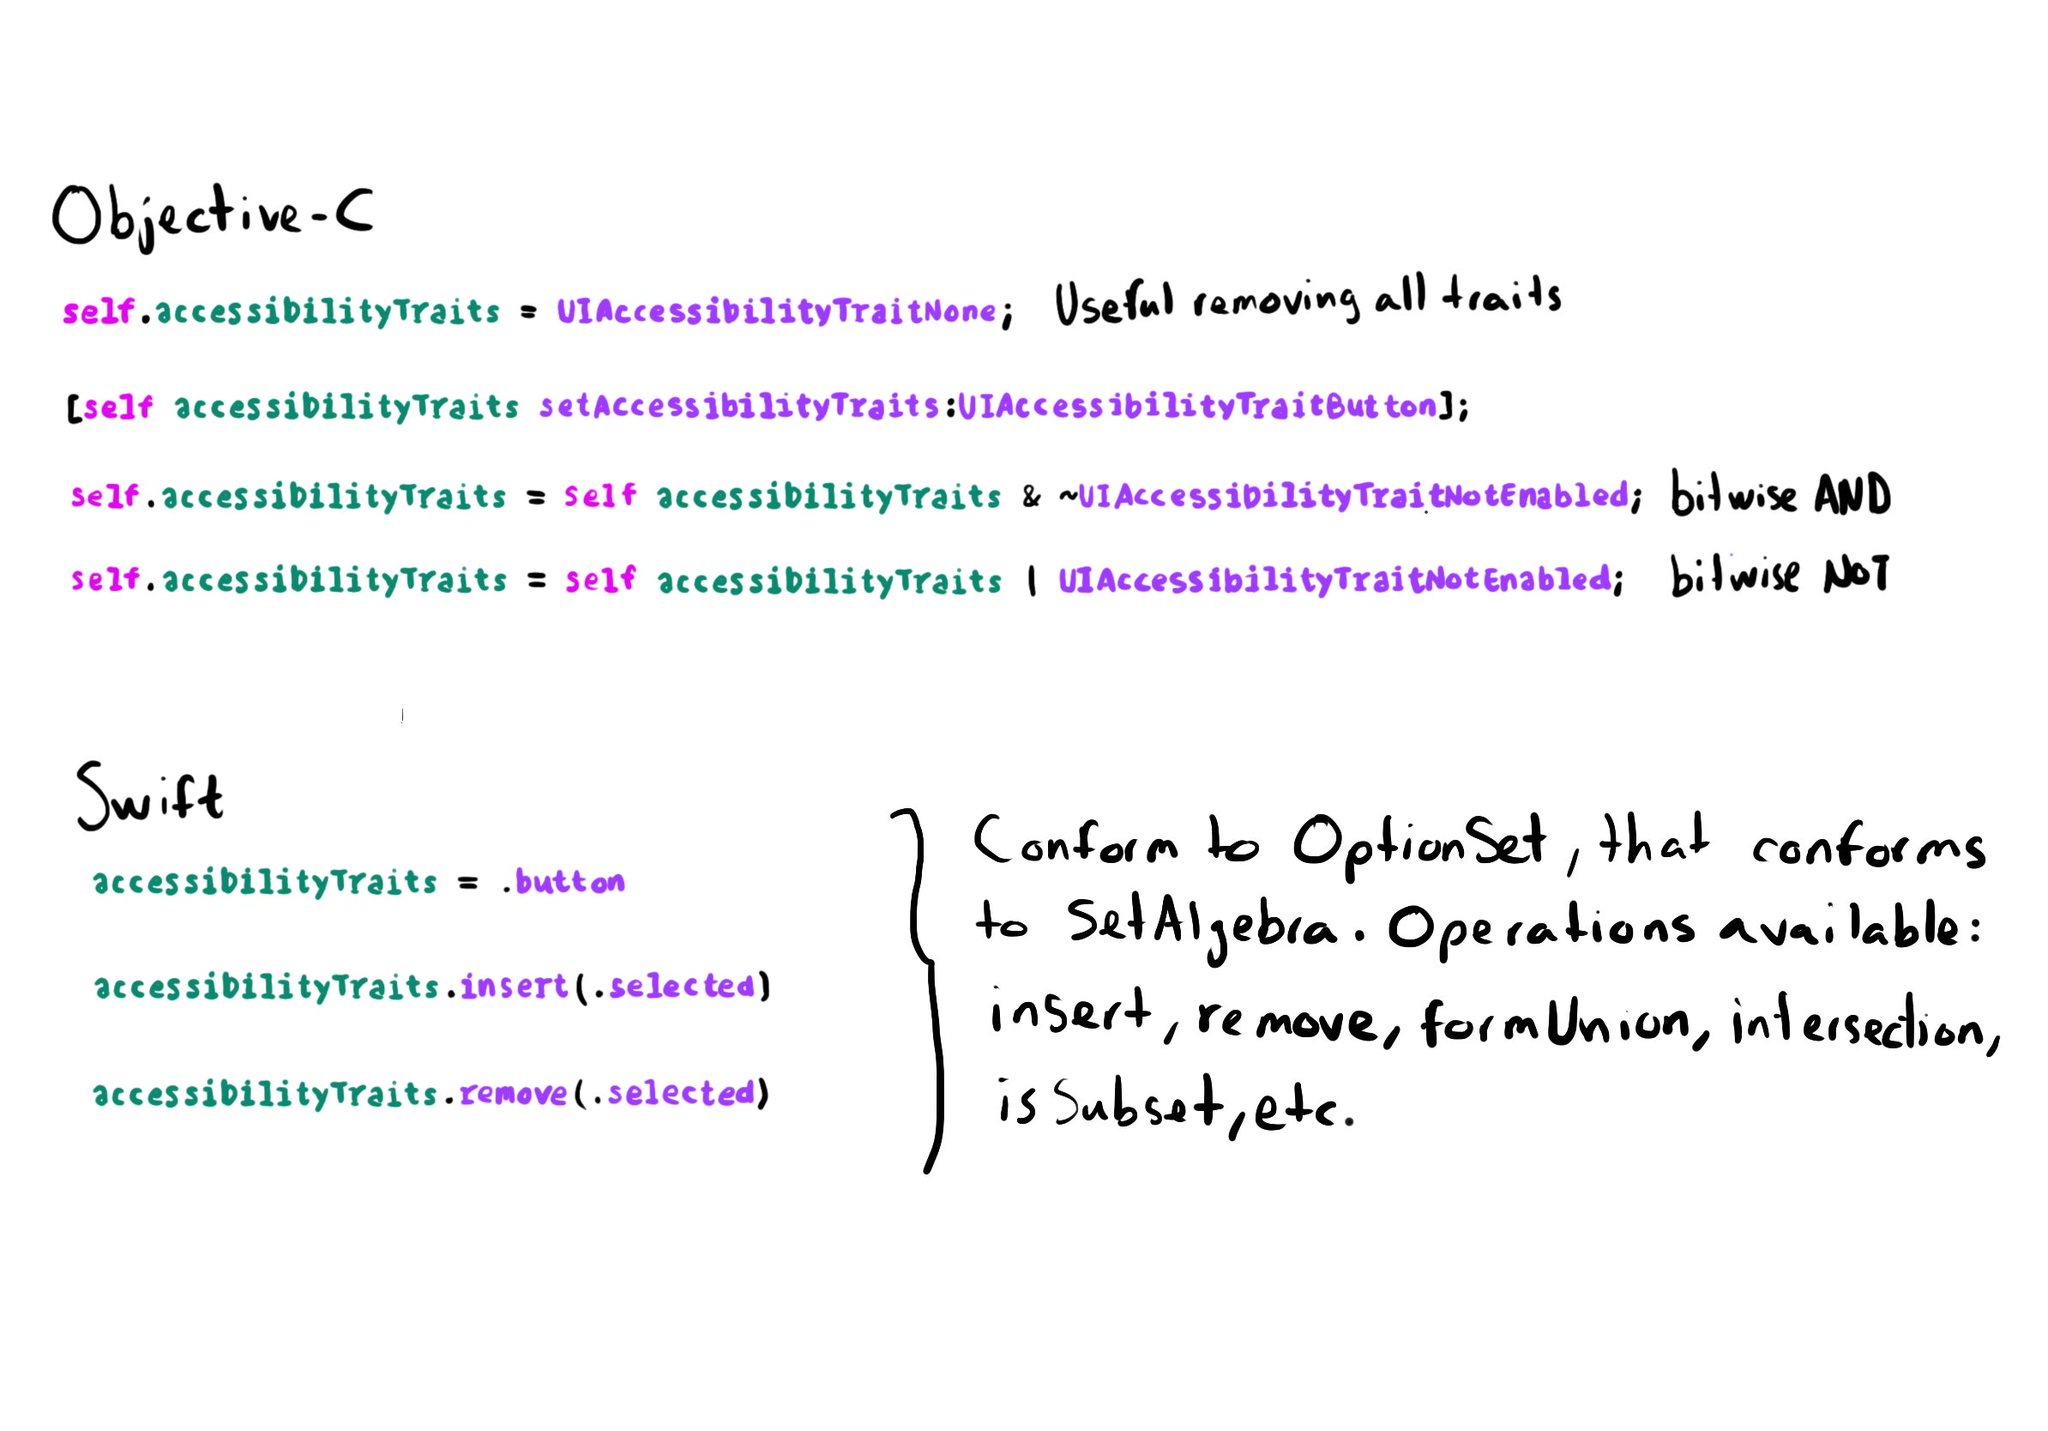 Objective-C
self.accessibilityTraits = UIAccessibilityTraitNone; Useful removing all traits
[self accessibilityTraits setAccessibilityTraits:UIAccessibilityTraitButton];
self.accessibilityTraits = self accessibilityTraits & ~UIAccessibilityTraitNotEnabled; bitwise AND
self.accessibilityTraits = self accessibilityTraits | UIAccessibilityTraitNotEnabled; bitwise NOT
Swift
accessibilityTraits = .button
accessibilityTraits.insert(.selected)
accessibilityTraits.remove(.selected)
Conform to OptionSet, that conforms
to SetAlgebra. Operations available:
insert, remove, formUnion, intersection,
isSubset, etc.